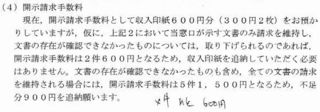 (4) 開示請求手数料
現在、開示請求手数料として収入印紙600円分(300円2枚)をお預か
りしていますが、仮に、上記2において当窓口が示す文書のみ請求を維持し、
文書の存在が確認できなかったものについては、取り下げられるのであれば、
開示請求手数料は2件600円となるため、収入印紙を追納していただく必要
はありません。文書の存在が確認できなかったものも含め、全ての文書の請求
を維持される場合には、開示請求手数料は5件1,500円となるため、不足
分900円を追納願います。
600円